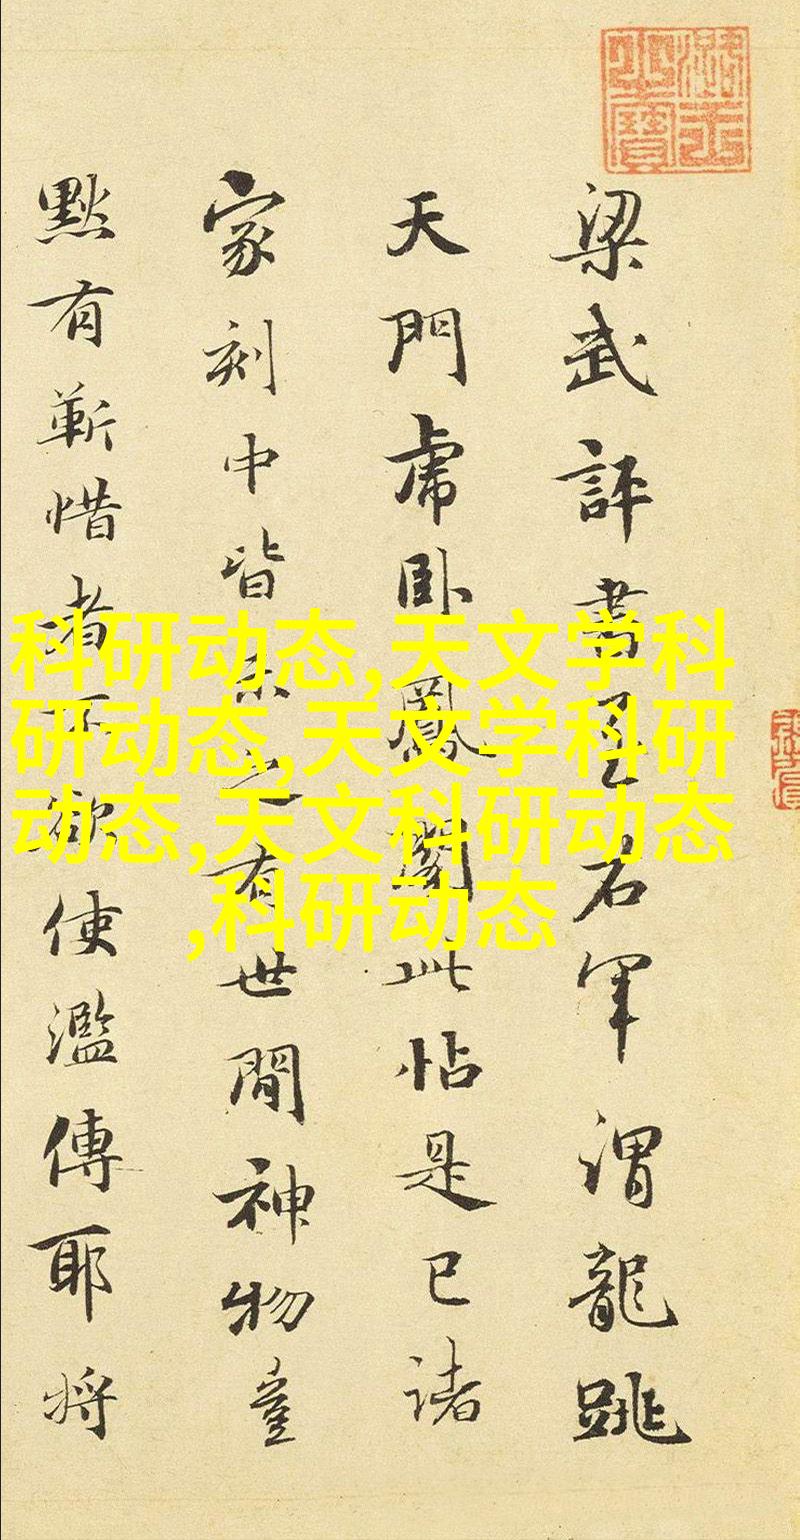 梁武評書至右軍謂龍跳
天門虎卧鳳閣此帖是已諸
家刻中皆未之有世間神物豈
黙有蘄惜者不欲使濫傳耶将
科研动态,天文学科
研动态,天文学科研
动态,天文科研动态
,科研动态